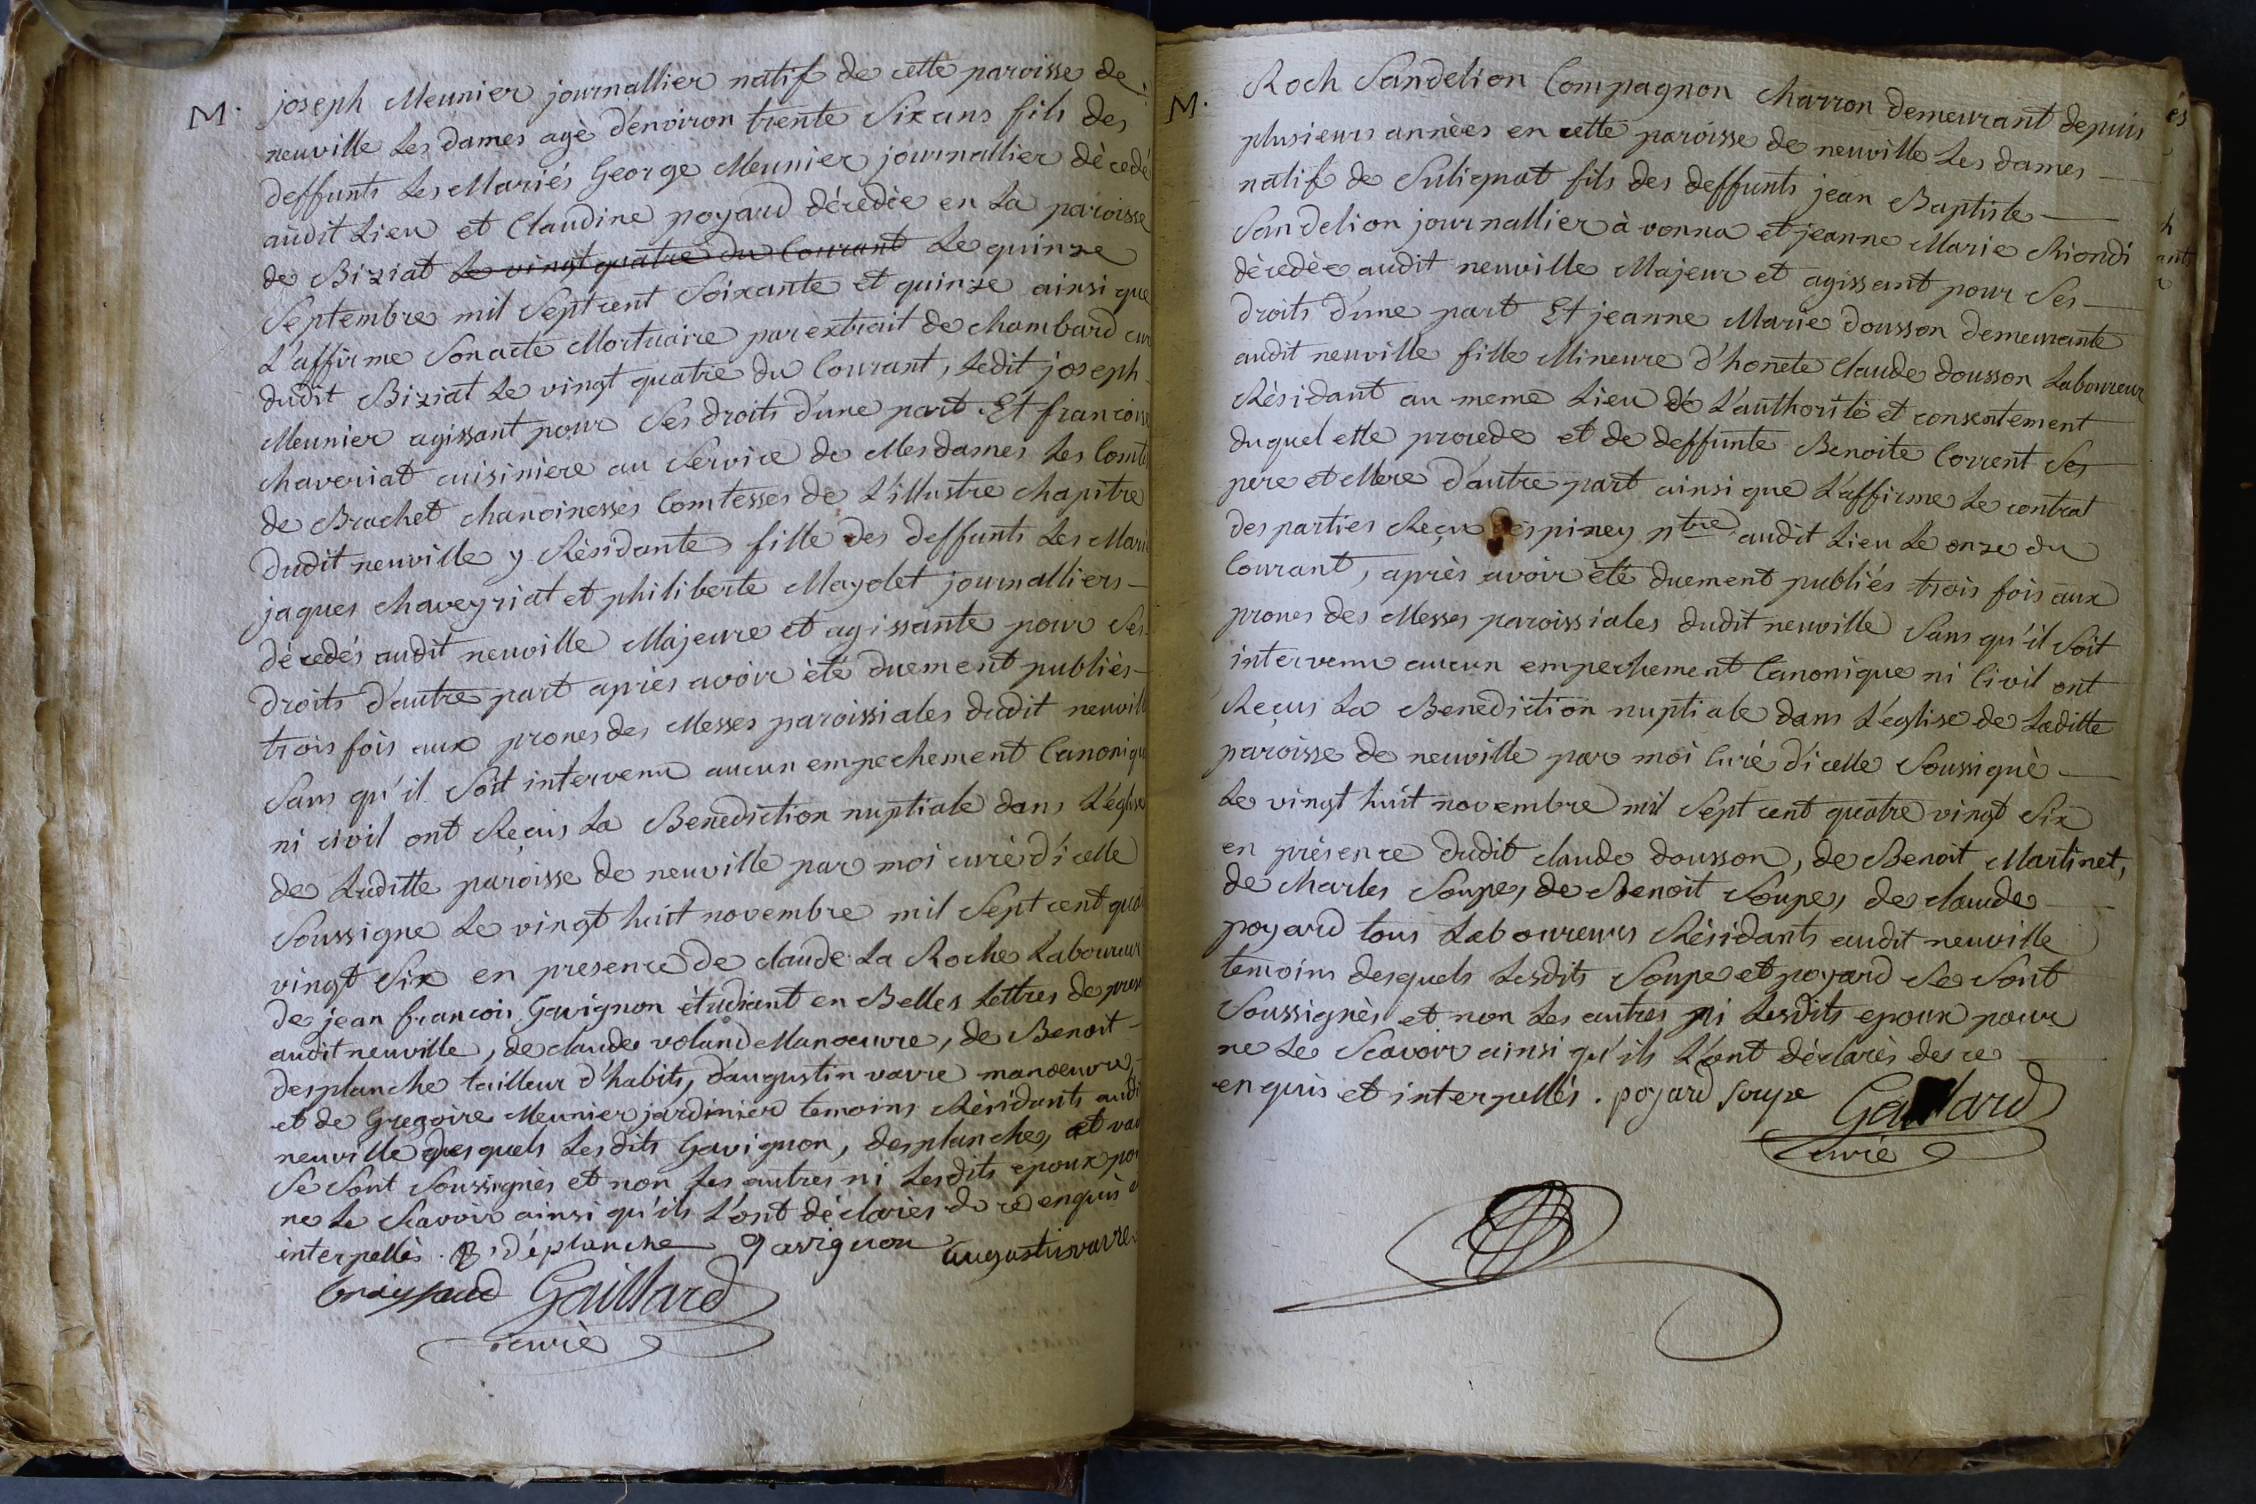 M. joseph Meunier journallier natif de cette paroisse de
neuville Les dames agè d'environ trente Six ans fils des
deffunts Les Mariés George Meunier journallier dècedé
audit Lieu et Claudine poyard dècedèe en La paroisse
de Biziat Le vingt quatre du Courant Le quinze
Septembre mil Sept cent Soixante et quinze ainsi que
L'affirme Son acte Mortuaire par extrait de chambard cur
dudit Biziat Le vingt quatre du Courant, Ledit joseph
Meunier agissant pour Ses droits d'une part Et francoise
chaveriat cuisiniere au Service de Mesdames Les Comte
de Brachet chanoinesses Comtesses de L'illustre chapitre
dudit neuville y Rèsidante fille des deffunts Les Mari
jaques chaveyriat et philiberte Mayolet journalliers
dècedés audit neuville Majeure et agissante pour Ses
droits d'autre part après avoir èté duement publiès
trois fois aux prones des Messes paroissiales dudit neuvill
Sans qu'il Soit intervenu aucun empechement Canoniqu
ni civil ont Reçus La Benediction nuptiale dans L'eglise
de Laditte paroisse de neuville par moi curè d'icelle
Soussigne Le vingt huit novembre mil Sept cent quat
vingt Six en presence de claude La Roche Laboureur
de jean francois Gavignon ètudiant en Belles Lettres de pres
audit neuville, de claude voland Manoeuvre, de Benoit
desplanche tailleur d'habits, d'augustin vavre manoeuvre,
et de Gregoire Meunier jardinier temoins Rèsidants audi
neuville desquels Lesdits Gavignon, desplanche, et vav
Se Sont Soussignès et non Les autres ni Lesdits epoux po
ne Le Scavoir ainsi qu'ils L'ont dèclarès de ce enquis e
interpellès. B déplanche gavignon augustin vavre
Gaillard
curè
M. Roch Sandelion Compagnon charron demeurant depuis
plusieurs annèes en cette paroisse de neuville Les dames
natif de Sulignat fils des deffunts jean Baptiste
Sandelion journallier à vonna et jeanne Marie Riondi
dècedèe audit neuville Majeur et agissant pour Ses
droits d'une part Et jeanne Marie dousson demeurante
audit neuville fille Mineure d'honete Claude dousson Laboureur
Rèsidant au meme Lieu de L'authorité et consentement
duquel elle procede et de deffunte Benoite Corrent Ses
pere et Mere d'autre part ainsi que L'affirme Le contrat
des parties Reçu despiney ntre audit Lieu Le onze du
Courant, après avoir èté duement publiés trois fois aux
prones des Messes paroissiales dudit neuville Sans qu'il Soit
intervenu aucun empechement Canonique ni Civil ont
Reçus La Benediction nuptiale dans L'église de Laditte
paroisse de neuville par moi Curé d'icelle Soussignè
Le vingt huit novembre mil Sept cent quatre vingt Six
en prèsence dudit claude dousson, de Benoit Martinet,
de charles Soupe, de Benoit Soupe, de claude
poyard tous Laboureurs Rèsidants audit neuville
temoins desquels Lesdits Soupe et poyard Se Sont
Soussignès et non Les autres ni Lesdits epoux pour
ne Le Scavoir ainsi qu'ils L'ont dèclarès de ce
enquis et interpellés. poyard soupe Gaillard
curè